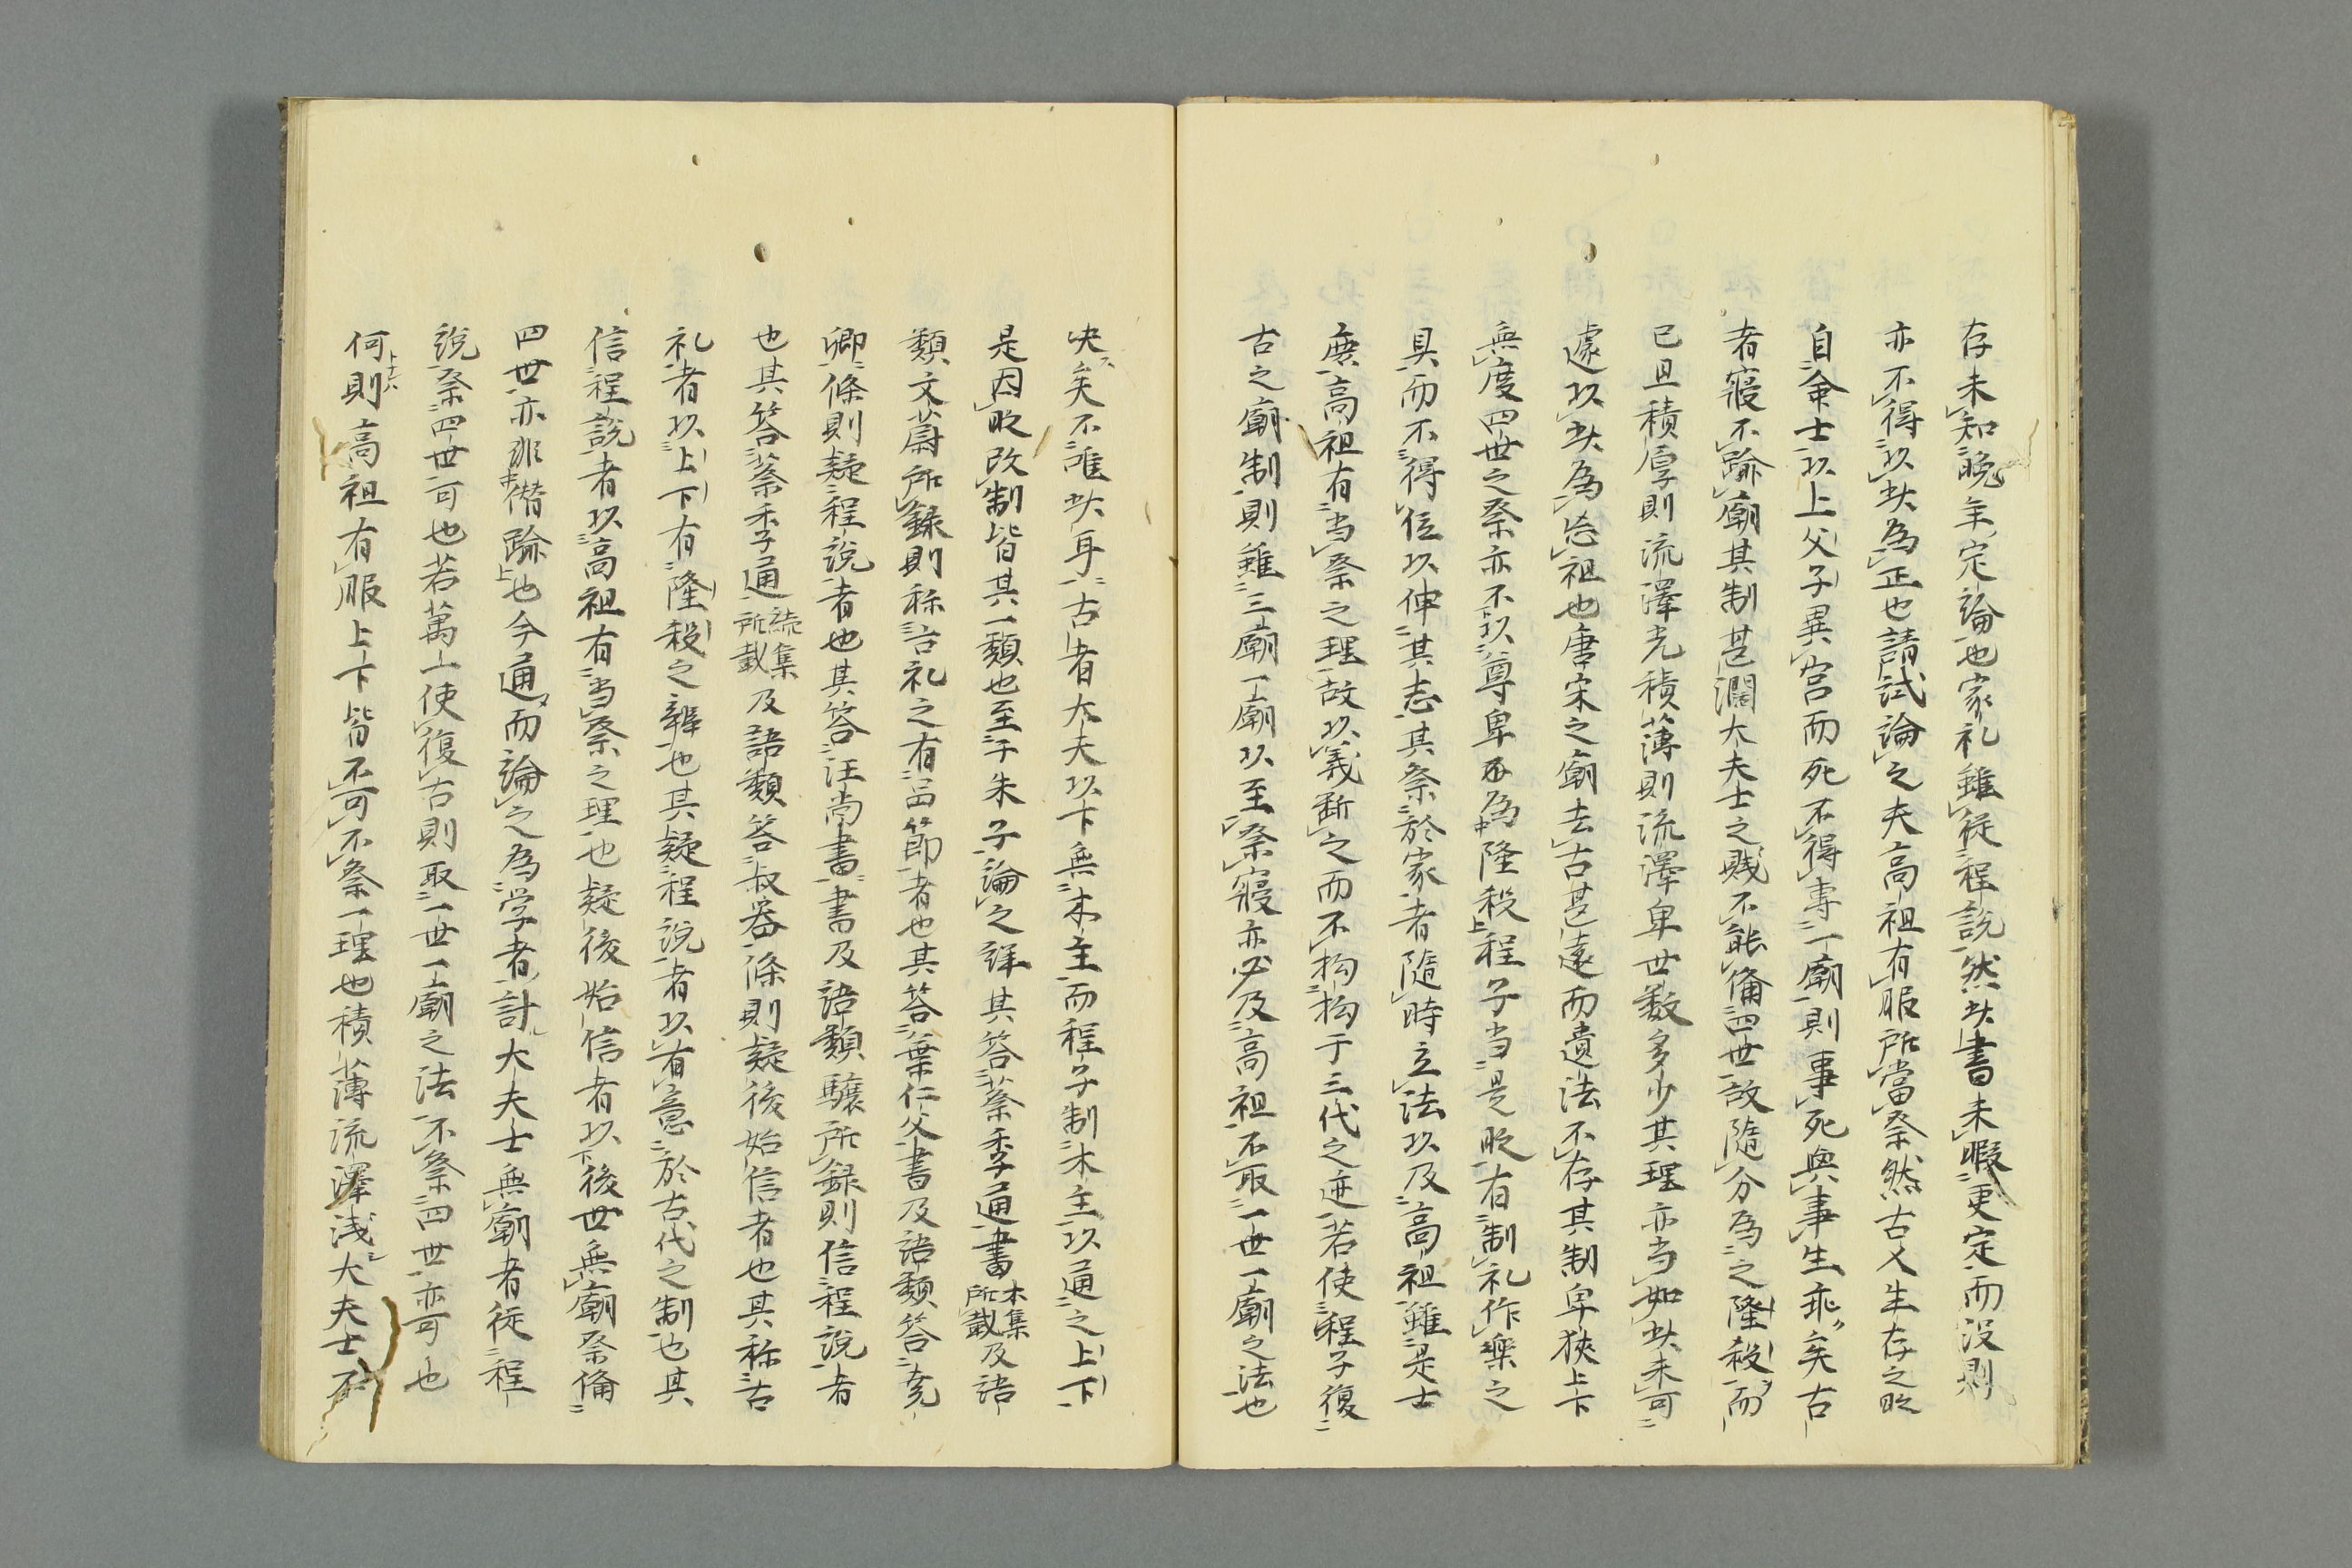 存未知晩年定論也家礼雖従程説然此書未暇更定而没則
亦不得以此為正也請試論之夫高祖有服所當祭然古人生存之時
自命士以上父子異宮而死不得専一廟則事死與事生乖矣古
者寝不踰廟其制甚濶大夫士之賤不能俻四世故随分為之隆殺而
已且積厚則流澤光積薄則流澤卑世数多少其理亦当如此未可
遽以此為忘祖也唐宋之廟去古甚遠而遺法不存其制卑狭上下
無度四世之祭亦不以尊卑而為隆殺程子当是時有制礼作樂之
具而不得位以伸其志其祭於家者随時立法以及高祖雖是士
庶高祖有当祭之理故以義断之而不拘拘于三代之迹若使程子復
古之廟制則雖三廟一廟以至祭寝亦必及高祖不取一世一廟之法也
决矣不唯此耳古者大夫以下無木主而程子制木主以通之上下
是因時改制皆其一類也至于朱子論之詳其答蔡季通書本集所載及語
類文蔚所録則称古礼之有品節者也其答葉仁父書及語類答尭
卿條則疑程説者也其答汪尚書書及語類驤所録則信程説者
也其答蔡季通続集所載及語類答叔器條則疑後始信者也其称古
礼者以上下有隆殺之辨也其疑程説者以有意於古代之制也其
信程説者以高祖有当祭之理也疑後始信者以後世無廟祭俻
四世亦非僣踰也今通而論之為学者計大夫士無廟者従程
説祭四世可也若萬一使復古則取一世一廟之法不祭四世亦可也
何則高祖有服上下皆不可不祭一理也積薄流澤浅大夫士不